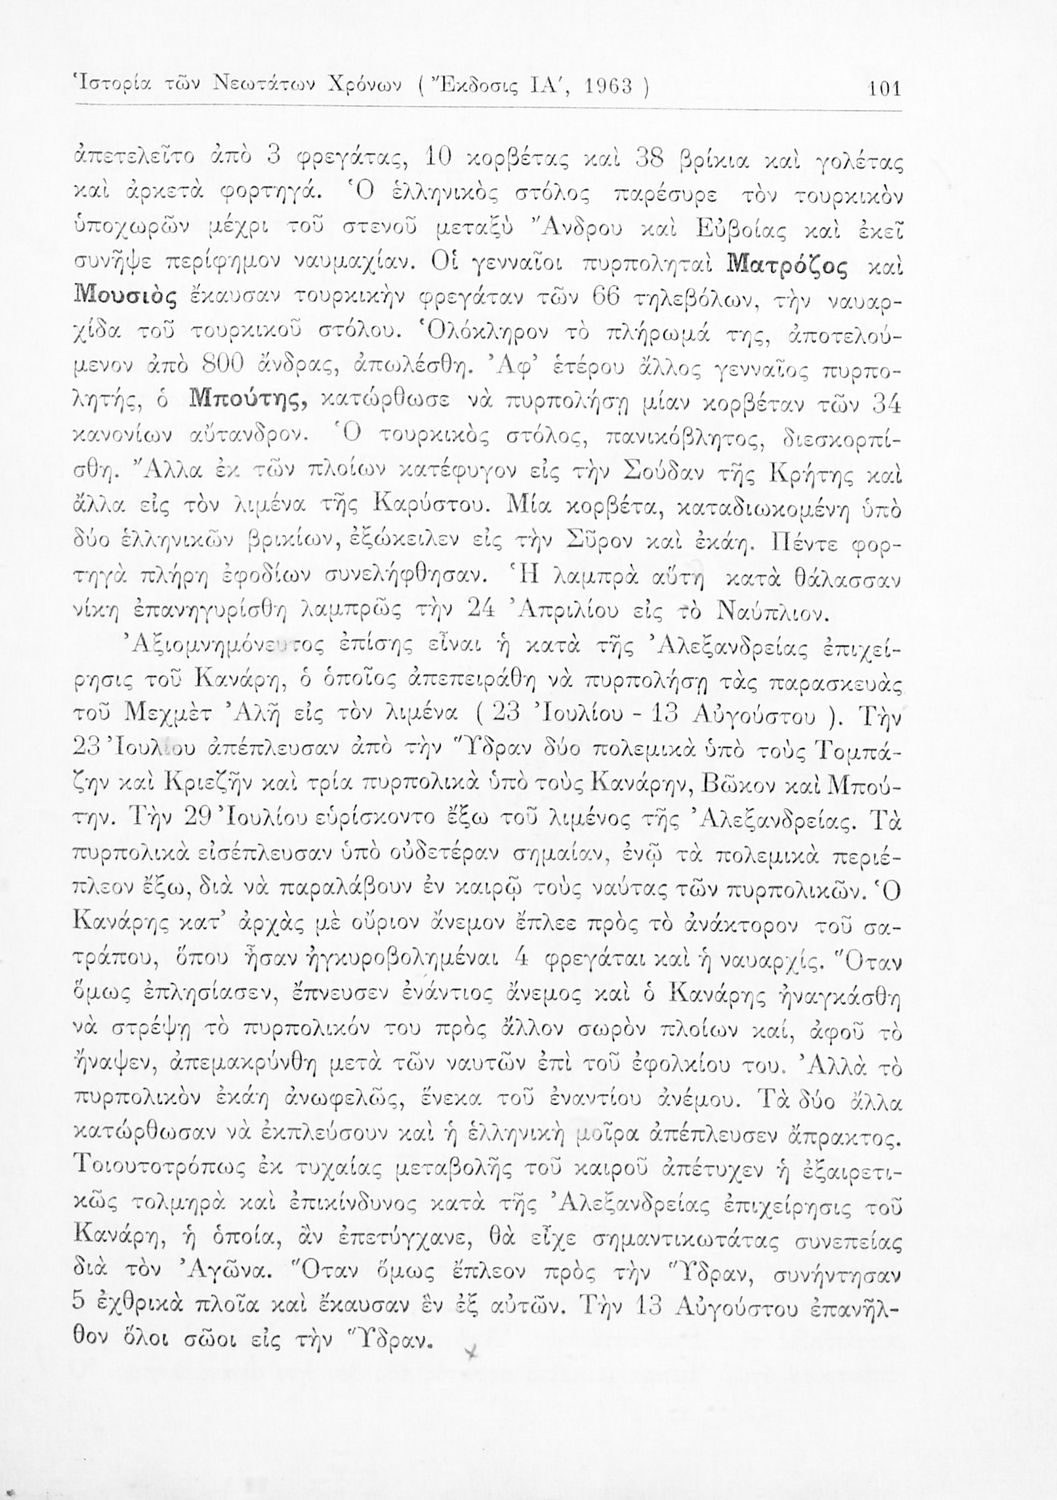 Ἱστορία τῶν Νεωτάτων Χρόνων ( Ἔκδοσις ΙΑ', 1963 ) 101
ἀπετελεῖτο ἀπὸ 3 φρεγάτας, 10 κορβέτας καὶ 38 βρίκια καὶ γολέτας
καὶ ἀρκετὰ φορτηγά. Ὁ ἑλληνικὸς στόλος παρέσυρε τὸν τουρκικὸν
ὑποχωρῶν μέχρι τοῦ στενοῦ μεταξὺ Ἄνδρου καὶ Εὐβοίας καὶ ἐκεῖ
συνῆψε περίφημον ναυμαχίαν. Οἱ γενναῖοι πυρποληταὶ Ματρόζος καὶ
Μουσιὸς ἔκαυσαν τουρκικὴν φρεγάταν τῶν 66 τηλεβόλων, τὴν ναυαρ-
χίδα τοῦ τουρκικοῦ στόλου. Ὁλόκληρον τὸ πλήρωμά της, ἀποτελού-
μενον ἀπὸ 800 ἄνδρας, ἀπωλέσθη. Ἀφ' ἑτέρου ἄλλος γενναῖος πυρπο-
λητής, ὁ Μπούτης, κατώρθωσε νὰ πυρπολήσῃ μίαν κορβέταν τῶν 34
κανονίων αὔτανδρον. Ὁ τουρκικὸς στόλος, πανικόβλητος, διεσκορπί-
σθη. Ἄλλα ἐκ τῶν πλοίων κατέφυγον εἰς τὴν Σούδαν τῆς Κρήτης καὶ
ἄλλα εἰς τὸν λιμένα τῆς Καρύστου. Μία κορβέτα, καταδιωκομένη ὑπὸ
δύο ἑλληνικῶν βρικίων, ἐξώκειλεν εἰς τὴν Σῦρον καὶ ἐκάη. Πέντε φορ-
τηγὰ πλήρη ἐφοδίων συνελήφθησαν. Ἡ λαμπρὰ αὕτη κατὰ θάλασσαν
νίκη ἐπανηγυρίσθη λαμπρῶς τὴν 24 Ἀπριλίου εἰς τὸ Ναύπλιον.
Ἀξιομνημόνευτος ἐπίσης εἶναι ἡ κατὰ τῆς Ἀλεξανδρείας ἐπιχεί-
ρησις τοῦ Κανάρη, ὁ ὁποῖος ἀπεπειράθη νὰ πυρπολήσῃ τὰς παρασκευὰς
τοῦ Μεχμὲτ Ἀλῆ εἰς τὸν λιμένα ( 23 Ἰουλίου - 13 Αὐγούστου ). Τὴν
23 Ἰουλίου ἀπέπλευσαν ἀπὸ τὴν Ὕδραν δύο πολεμικὰ ὑπὸ τοὺς Τομπά-
ζην καὶ Κριεζῆν καὶ τρία πυρπολικὰ ὑπὸ τοὺς Κανάρην, Βῶκον καὶ Μπού-
την. Τὴν 29 Ἰουλίου εὑρίσκοντο ἔξω τοῦ λιμένος τῆς Ἀλεξανδρείας. Τὰ
πυρπολικὰ εἰσέπλευσαν ὑπὸ οὐδετέραν σημαίαν, ἐνῷ τὰ πολεμικὰ περιέ-
πλεον ἔξω, διὰ νὰ παραλάβουν ἐν καιρῷ τοὺς ναύτας τῶν πυρπολικῶν. Ὁ
Κανάρης κατ' ἀρχὰς μὲ οὔριον ἄνεμον ἔπλεε πρὸς τὸ ἀνάκτορον τοῦ σα-
τράπου, ὅπου ἦσαν ἠγκυροβολημέναι 4 φρεγάται καὶ ἡ ναυαρχίς. Ὅταν
ὅμως ἐπλησίασεν, ἔπνευσεν ἐνάντιος ἄνεμος καὶ ὁ Κανάρης ἠναγκάσθη
νὰ στρέψῃ τὸ πυρπολικόν του πρὸς ἄλλον σωρὸν πλοίων καί, ἀφοῦ τὸ
ἤναψεν, ἀπεμακρύνθη μετὰ τῶν ναυτῶν ἐπὶ τοῦ ἐφολκίου του. Ἀλλὰ τὸ
πυρπολικὸν ἐκάη ἀνωφελῶς, ἕνεκα τοῦ ἐναντίου ἀνέμου. Τὰ δύο ἄλλα
κατώρθωσαν νὰ ἐκπλεύσουν καὶ ἡ ἑλληνικὴ μοῖρα ἀπέπλευσεν ἄπρακτος.
Τοιουτοτρόπως ἐκ τυχαίας μεταβολῆς τοῦ καιροῦ ἀπέτυχεν ἡ ἐξαιρετι-
κῶς τολμηρὰ καὶ ἐπικίνδυνος κατὰ τῆς Ἀλεξανδρείας ἐπιχείρησις τοῦ
Κανάρη, ἡ ὁποία, ἂν ἐπετύγχανε, θὰ εἶχε σημαντικωτάτας συνεπείας
διὰ τὸν Ἀγῶνα. Ὅταν ὅμως ἔπλεον πρὸς τὴν Ὕδραν, συνήντησαν
5 ἐχθρικὰ πλοῖα καὶ ἔκαυσαν ἓν ἐξ αὐτῶν. Τὴν 13 Αὐγούστου ἐπανῆλ-
θον ὅλοι σῶοι εἰς τὴν Ὕδραν.